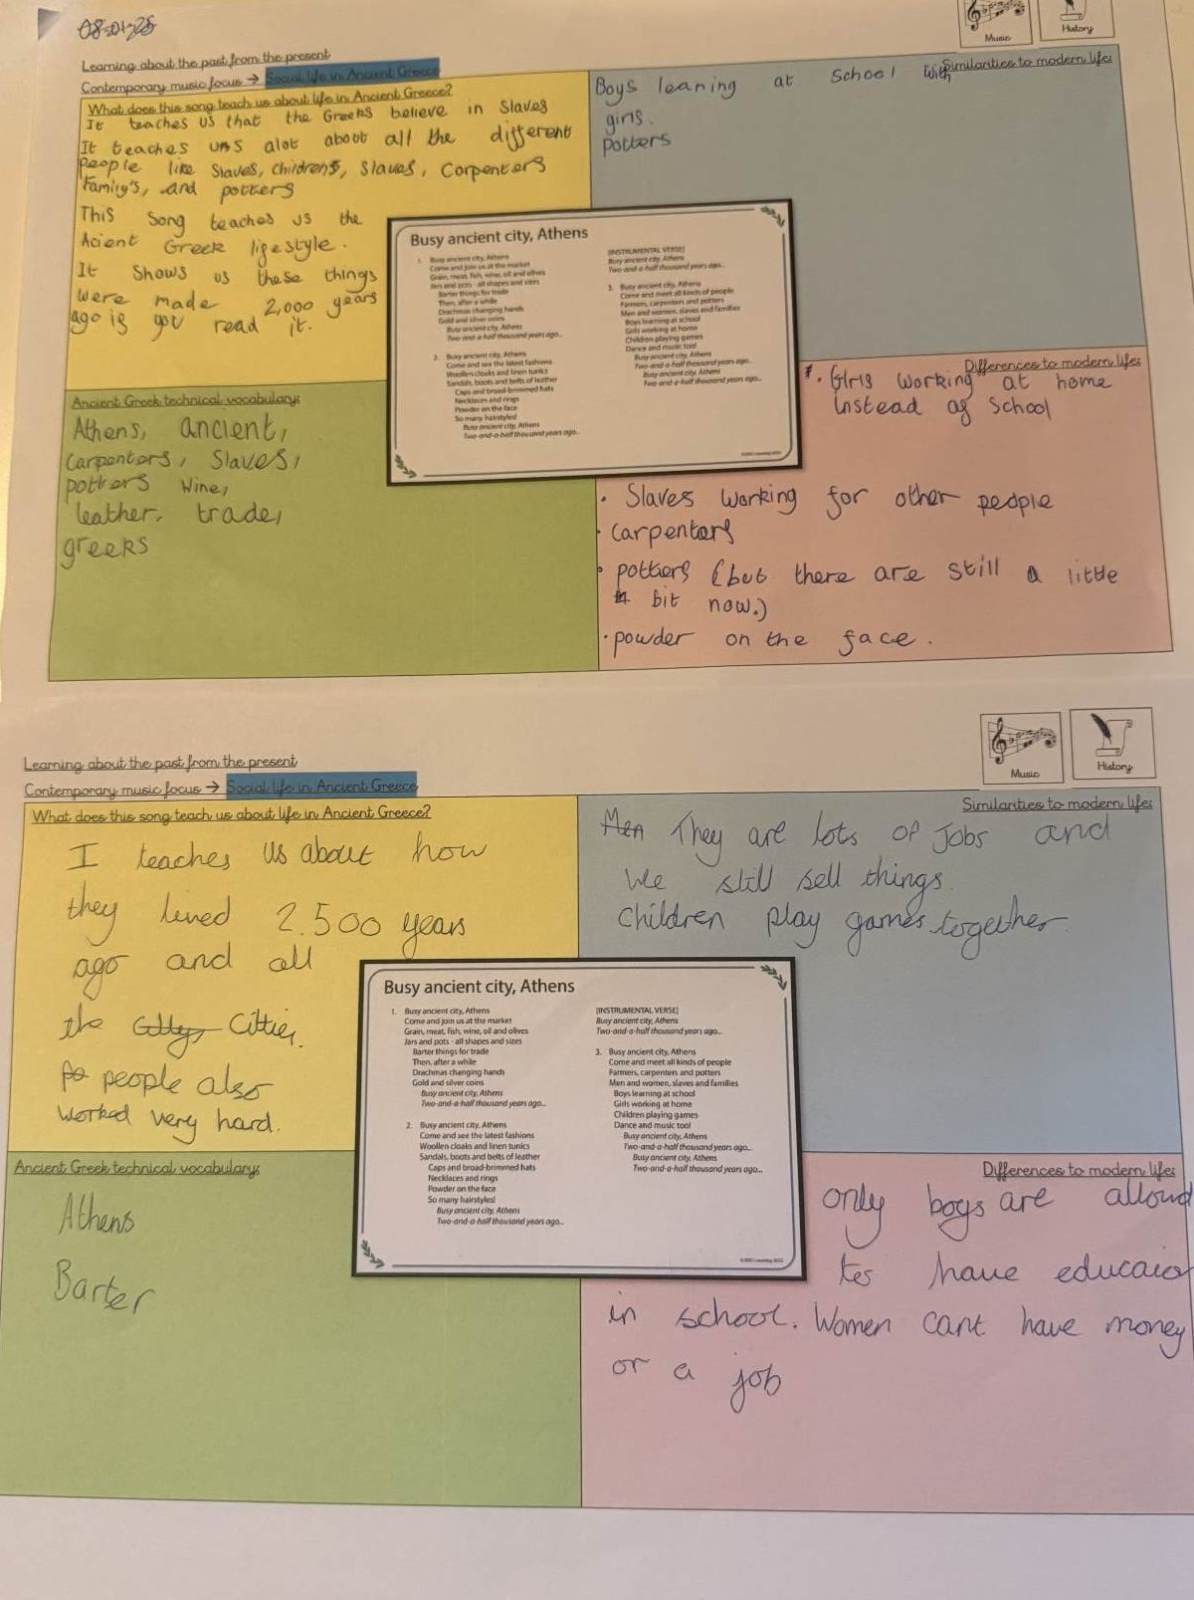 08-01-25
Music
History
Learning about the past from the present
Contemporary music focus → Social life in Ancient Greece
What does this song teach us about life in Ancient Greece?
It teaches us that the Greeks believe in Slaves
It teaches us alot about all the different
people like Slaves, childrens, Slaves, Carpenters
family's, and potters
This Song teaches us the
Acient Greek lifestyle.
It Shows us these things
were made 2,000 years
ago if you read it.
Similarities to modern life:
Boys leaning at School with
girls.
potters
Busy ancient city, Athens
1. Busy ancient city, Athens
Come and join us at the market
Grain, meat, fish, wine, oil and olives
Jars and pots - all shapes and sizes
Barter things for trade
Then, after a while
Drachmas changing hands
Gold and silver coins
Busy ancient city, Athens
Two-and-a-half thousand years ago...
2. Busy ancient city, Athens
Come and see the latest fashions
Woollen cloaks and linen tunics
Sandals, boots and belts of leather
Caps and broad-brimmed hats
Necklaces and rings
Powder on the face
So many hairstyles!
Busy ancient city, Athens
Two-and-a-half thousand years ago...
[INSTRUMENTAL VERSE]
Busy ancient city, Athens
Two-and-a-half thousand years ago...
3. Busy ancient city, Athens
Come and meet all kinds of people
Farmers, carpenters and potters
Men and women, slaves and families
Boys learning at school
Girls working at home
Children playing games
Dance and music too!
Busy ancient city, Athens
Two-and-a-half thousand years ago...
Busy ancient city, Athens
Two-and-a-half thousand years ago...
Ancient Greek technical vocabulary:
Athens, ancient,
carpentors, Slaves,
potters Wine,
leather, trade,
greeks
Differences to modern life:
. Girls working at home
instead of School
. Slaves working for other people
. carpenters
. potters (but there are still a little
bit now.)
. powder on the face.
Music
History
Learning about the past from the present
Contemporary music focus → Social life in Ancient Greece
What does this song teach us about life in Ancient Greece?
I teaches us about how
they lived 2.500 years
ago and all
the Citties.
people also
worked very hard.
Similarities to modern life:
Men They are lots of Jobs and
We still sell things.
children play games together
Busy ancient city, Athens
1. Busy ancient city, Athens
Come and join us at the market
Grain, meat, fish, wine, oil and olives
Jars and pots - all shapes and sizes
Barter things for trade
Then, after a while
Drachmas changing hands
Gold and silver coins
Busy ancient city, Athens
Two-and-a-half thousand years ago...
2. Busy ancient city, Athens
Come and see the latest fashions
Woollen cloaks and linen tunics
Sandals, boots and belts of leather
Caps and broad-brimmed hats
Necklaces and rings
Powder on the face
So many hairstyles!
Busy ancient city, Athens
Two-and-a-half thousand years ago...
[INSTRUMENTAL VERSE]
Busy ancient city, Athens
Two-and-a-half thousand years ago...
3. Busy ancient city, Athens
Come and meet all kinds of people
Farmers, carpenters and potters
Men and women, slaves and families
Boys learning at school
Girls working at home
Children playing games
Dance and music too!
Busy ancient city, Athens
Two-and-a-half thousand years ago...
Busy ancient city, Athens
Two-and-a-half thousand years ago...
Ancient Greek technical vocabulary:
Athens
Barter
Differences to modern life:
only boys are allowd
to have educaio
in school. Women cant have money
or a job